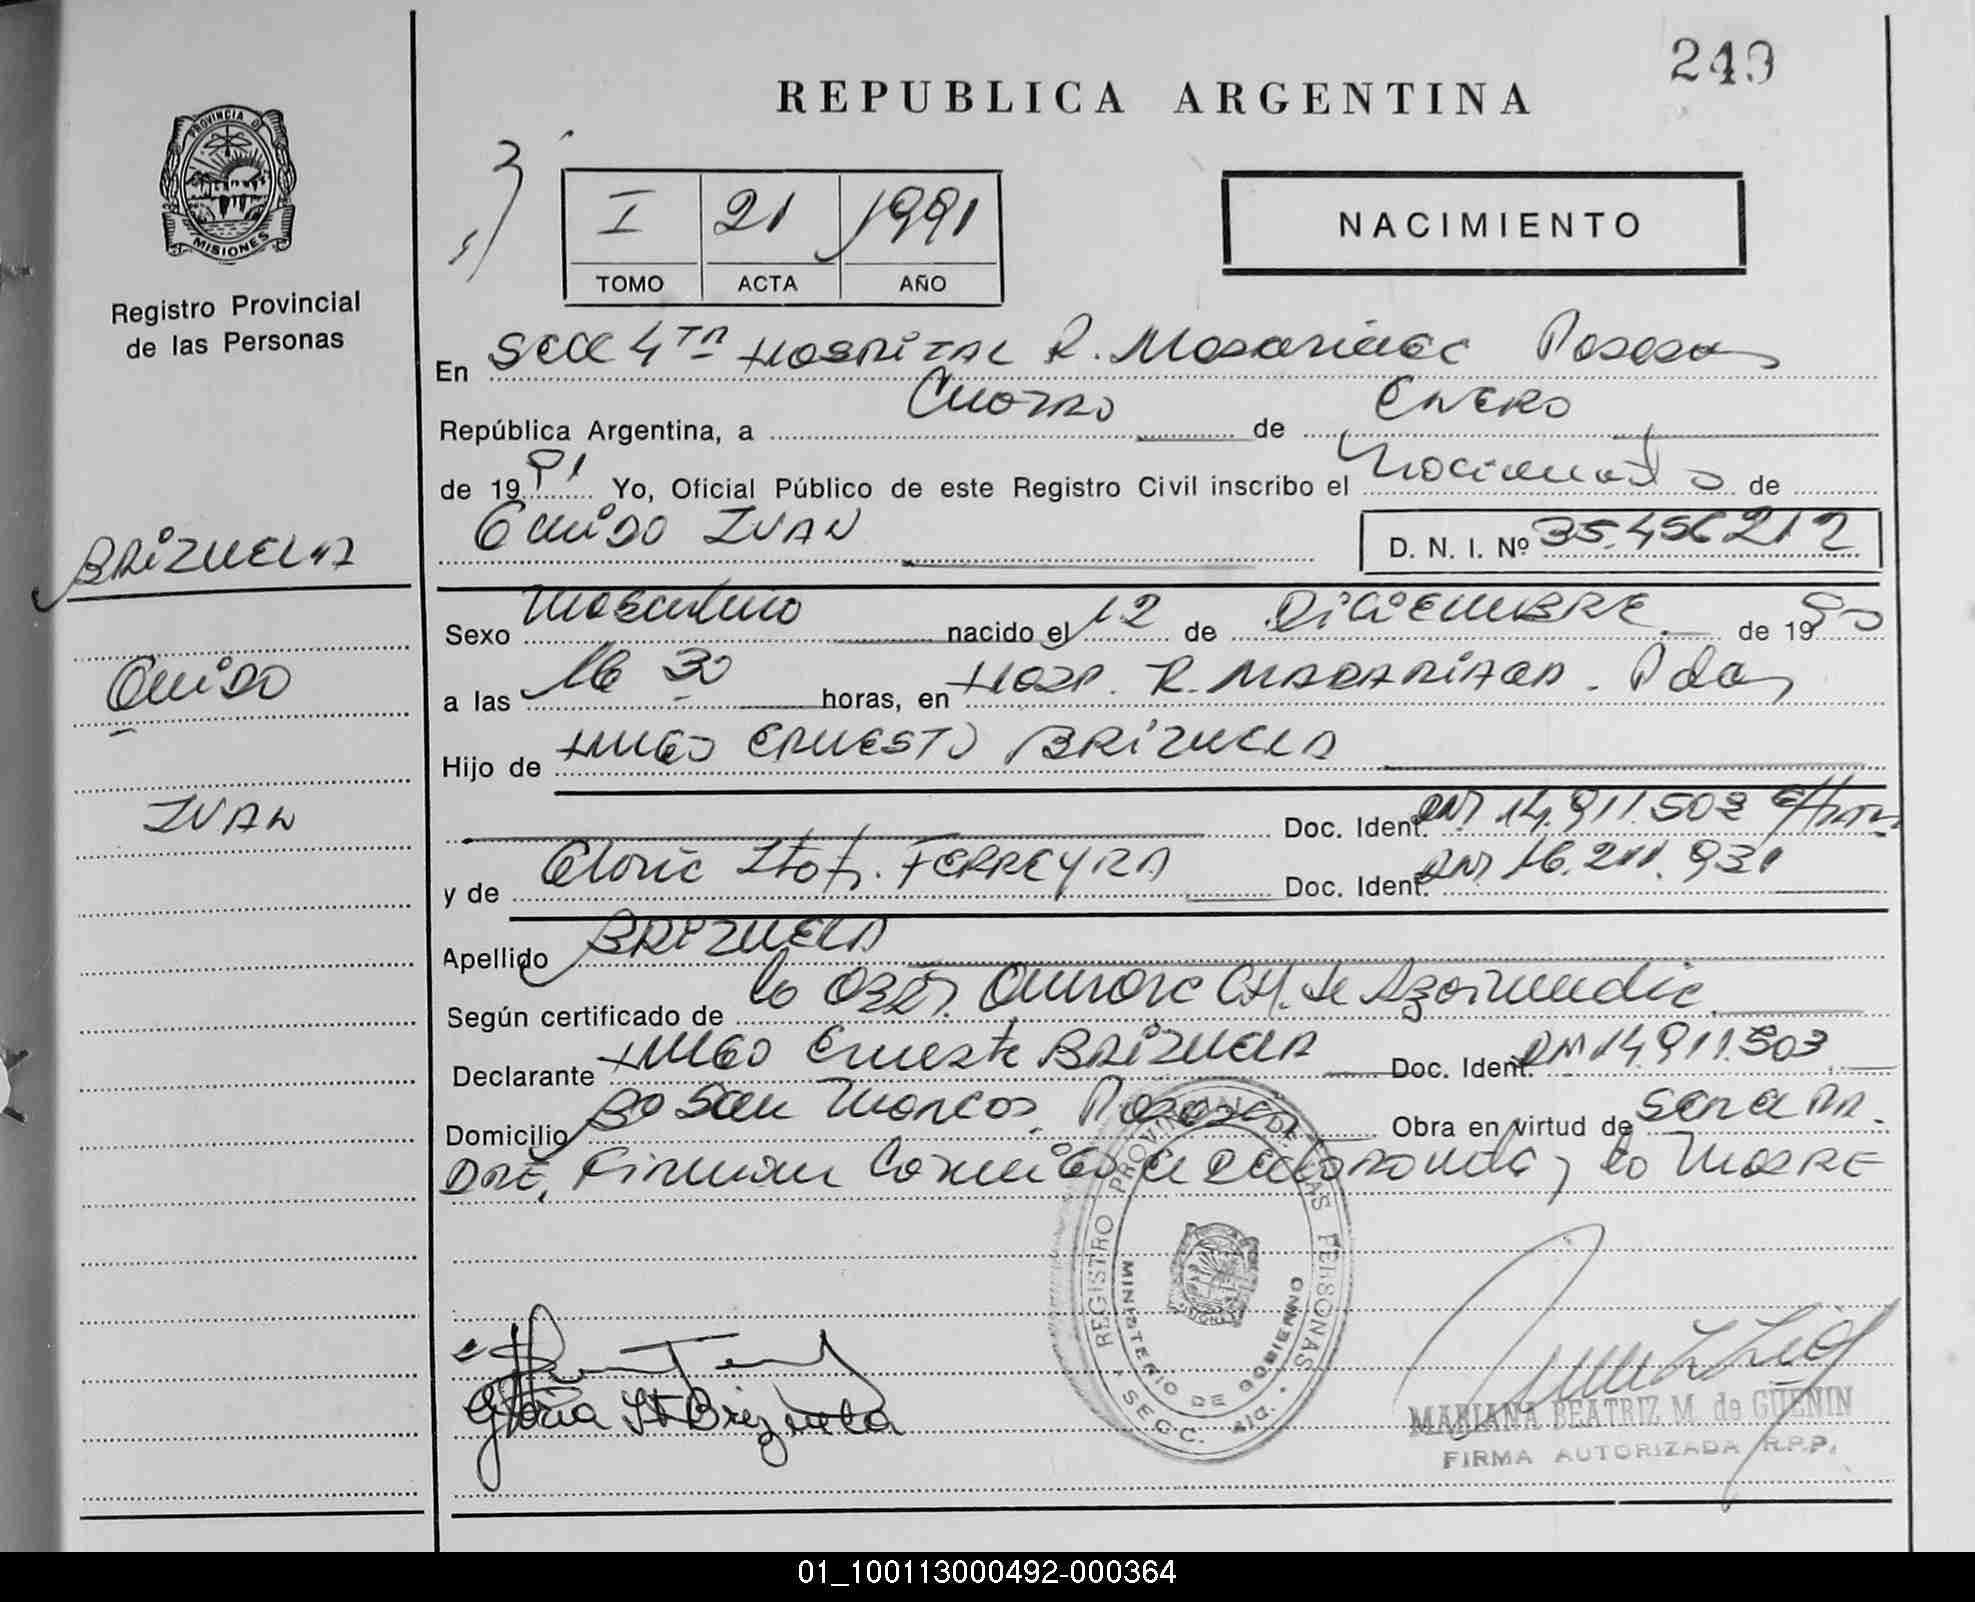 249
REPUBLICA ARGENTINA
PROVINCIA DE
MISIONES
Registro Provincial
de las Personas
I 21 1991
TOMO ACTA AÑO
NACIMIENTO
En Secc 4ta HOSPITAL R. Madariaga Posadas
República Argentina, a Cuatro de ENERO
de 1991 Yo, Oficial Público de este Registro Civil inscribo el Nacimiento de
GUIDO IVAN
D. N. I. Nº 35.456212
BRIZUELA
GUIDO
IVAN
Sexo Masculino nacido el 12 de DICIEMBRE de 1990
a las 16 30 horas, en HOSP. R. MADARIAGA. Pdas
Hijo de HUGO ERNESTO BRIZUELA
Doc. Ident. DNI 14.911.503
y de Gloria FERREYRA Doc. Ident. DNI 16.211.931
Apellido BRIZUELA
Según certificado de la Obst. Aurora CH. de
Declarante HUGO Ernesto BRIZUELA Doc. Ident. DNI 14.911.503
Domicilio Bo San Marcos. Posadas Obra en virtud de ser el PA-
DRE, Firman Conmigo el Declarante y la MADRE
REGISTRO PROVINCIAL DE LAS PERSONAS
MINISTERIO DE GOBIERNO
Gloria Brizuela
MARIANA BEATRIZ M. de GÜENIN
FIRMA AUTORIZADA R.P.P.
01_100113000492-000364